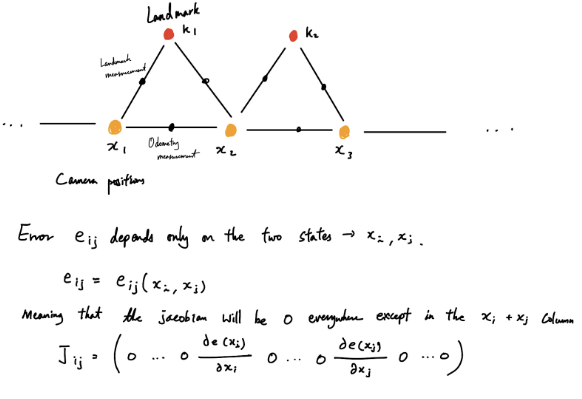 Landmark
k₁
k₂
Landmark measurement
... ...
x₁ Odometry measurement x₂ x₃
Camera positions
Error eᵢⱼ depends only on the two states → xᵢ, xⱼ.
eᵢⱼ = eᵢⱼ(xᵢ, xⱼ)
Meaning that the jacobian will be 0 everywhere except in the xᵢ + xⱼ column
Jᵢⱼ = ( 0 ... 0 ∂e(xᵢ)/∂xᵢ 0 ... 0 ∂e(xⱼ)/∂xⱼ 0 ... 0 )